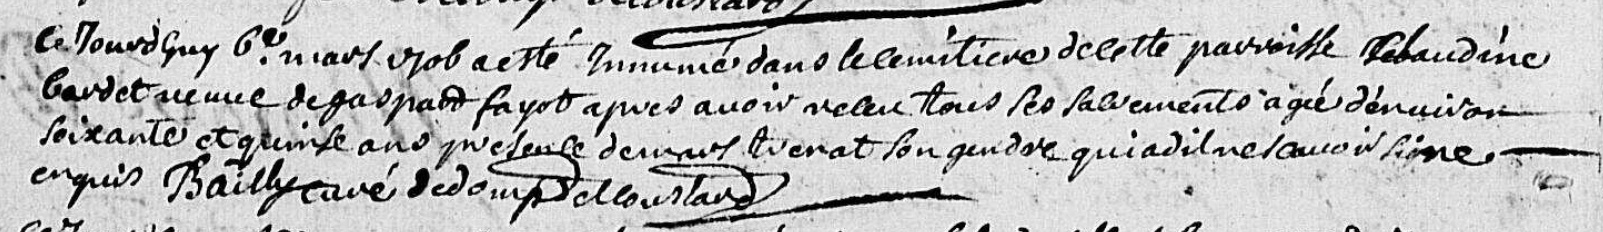 ce Jourdhuy 6e mars 1706 a esté Innumé dans le cemitiere de cette parroisse Claudine
bardet veuve de gaspard fayot apres avoir receu tous ses sacrements agée d'environ
soixante et quinse ans presence de mars son gendre qui a dit ne scavoir signe
enquis Bailly curé de domp